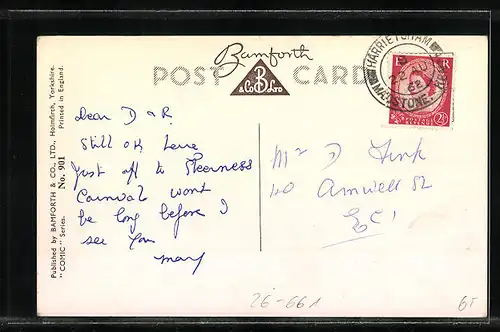 Bamforth
POST CARD
B
& Co LTD
HARRIETSHAM
MAIDSTONE
62
E R
2½
Published by BAMFORTH & CO., LTD., Holmfirth, Yorkshire.
"COMIC" Series. No. 901 Printed in England.
Dear D & R
Still OK here
Just off to Sheerness
Carnival wont
be long before I
see you
Mary
Mr D Fink
40 Amwell St
EC1
26-661
65